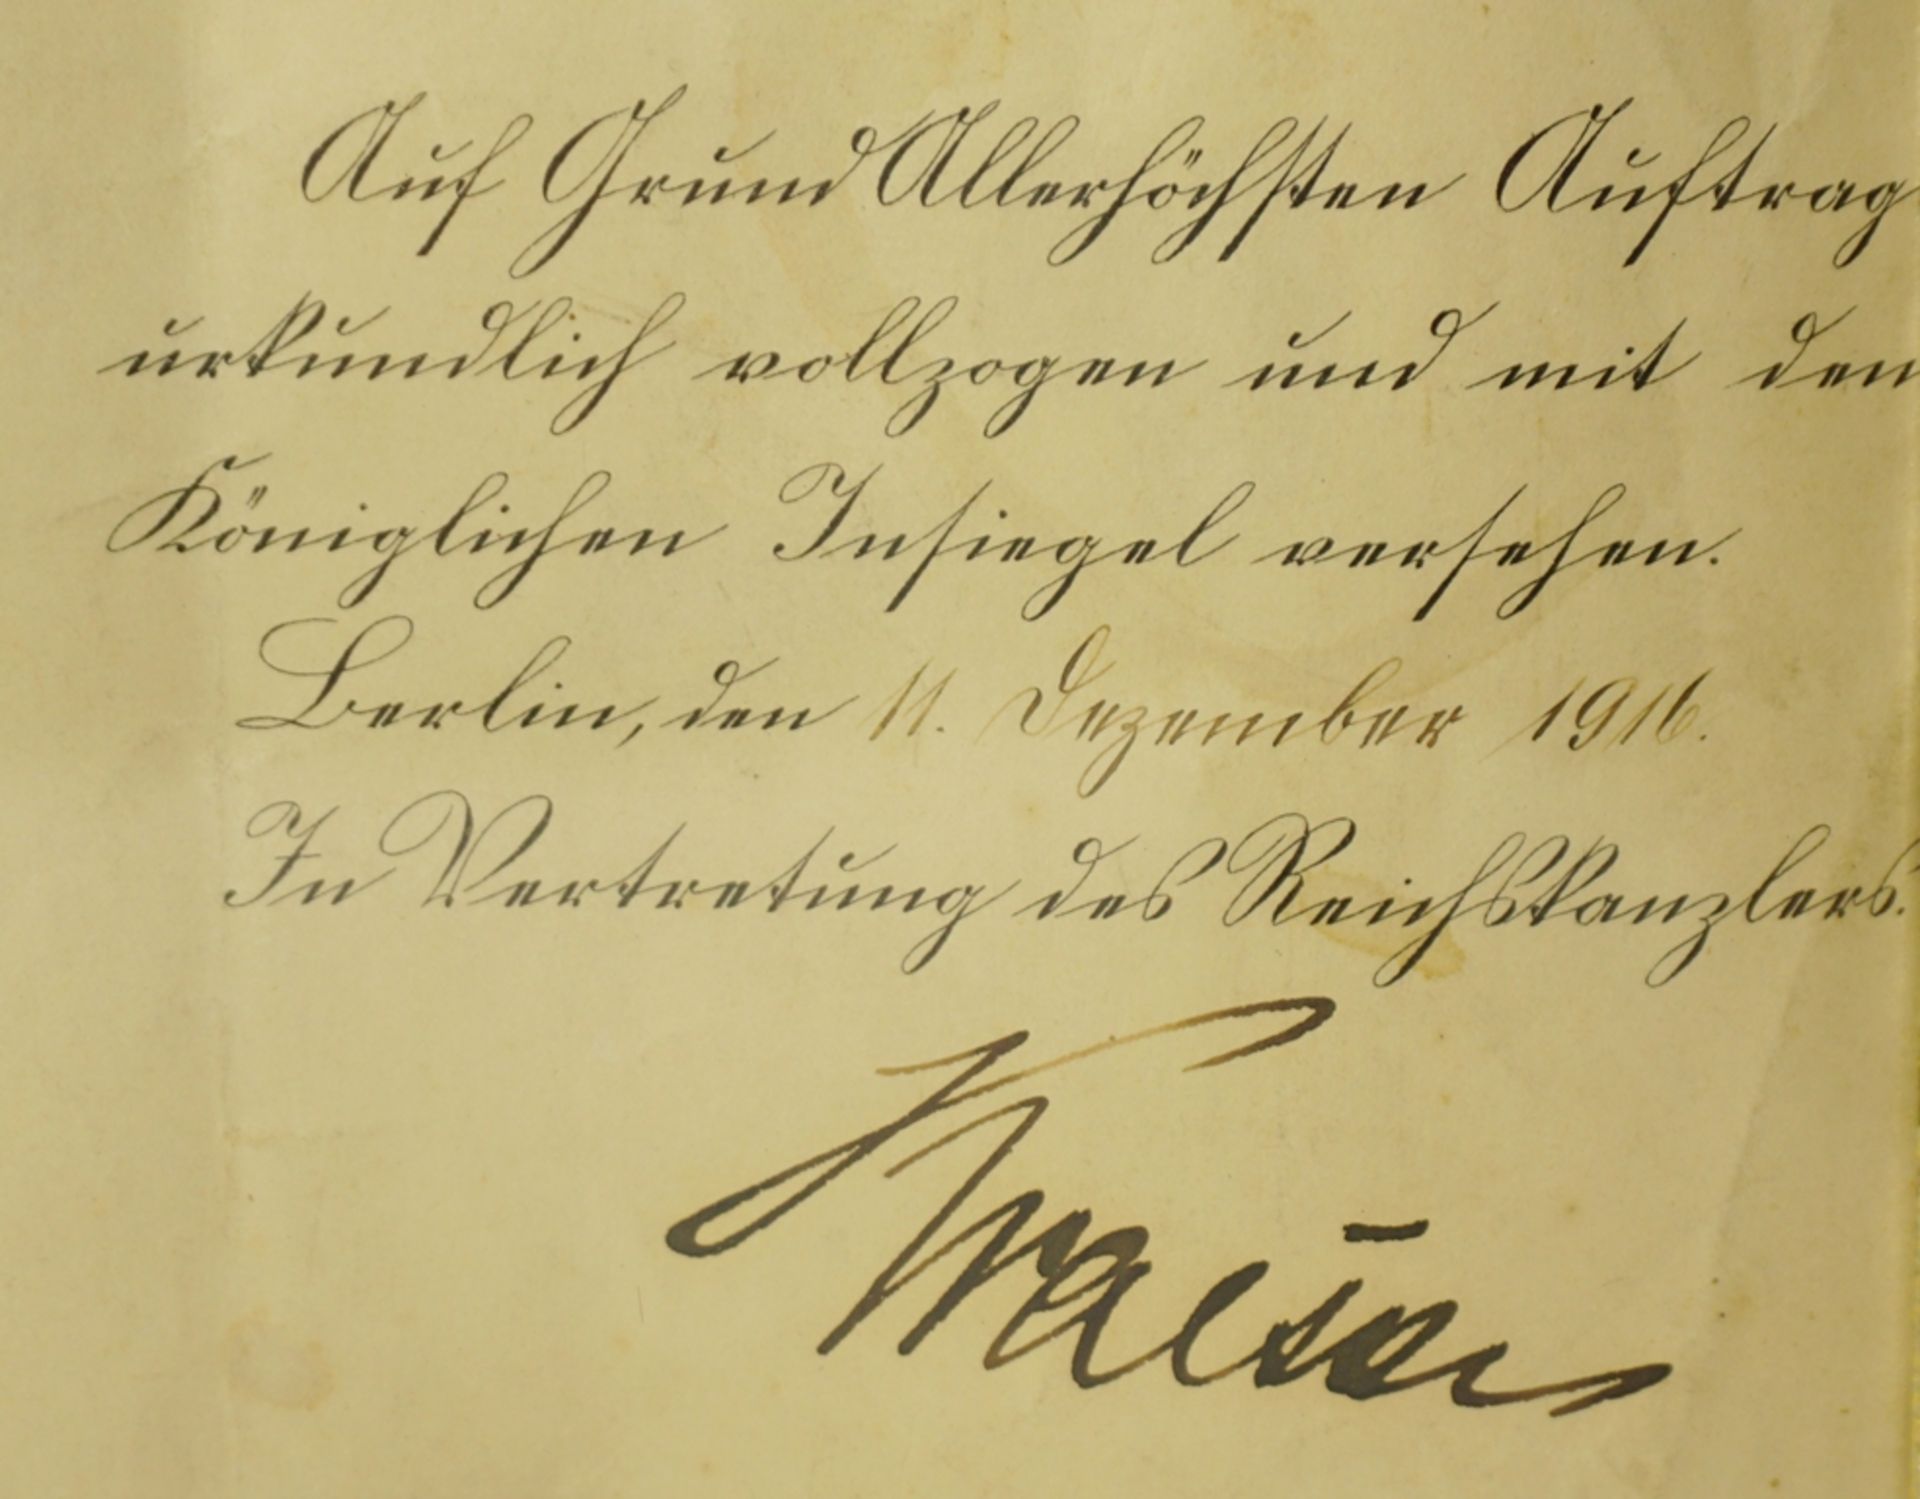 Auf Grund Allerhöchsten Auftrag
urkundlich vollzogen und mit den
Königlichen Insiegel versehen.
Berlin, den 11. Dezember 1916.
In Vertretung des Reichskanzlers.